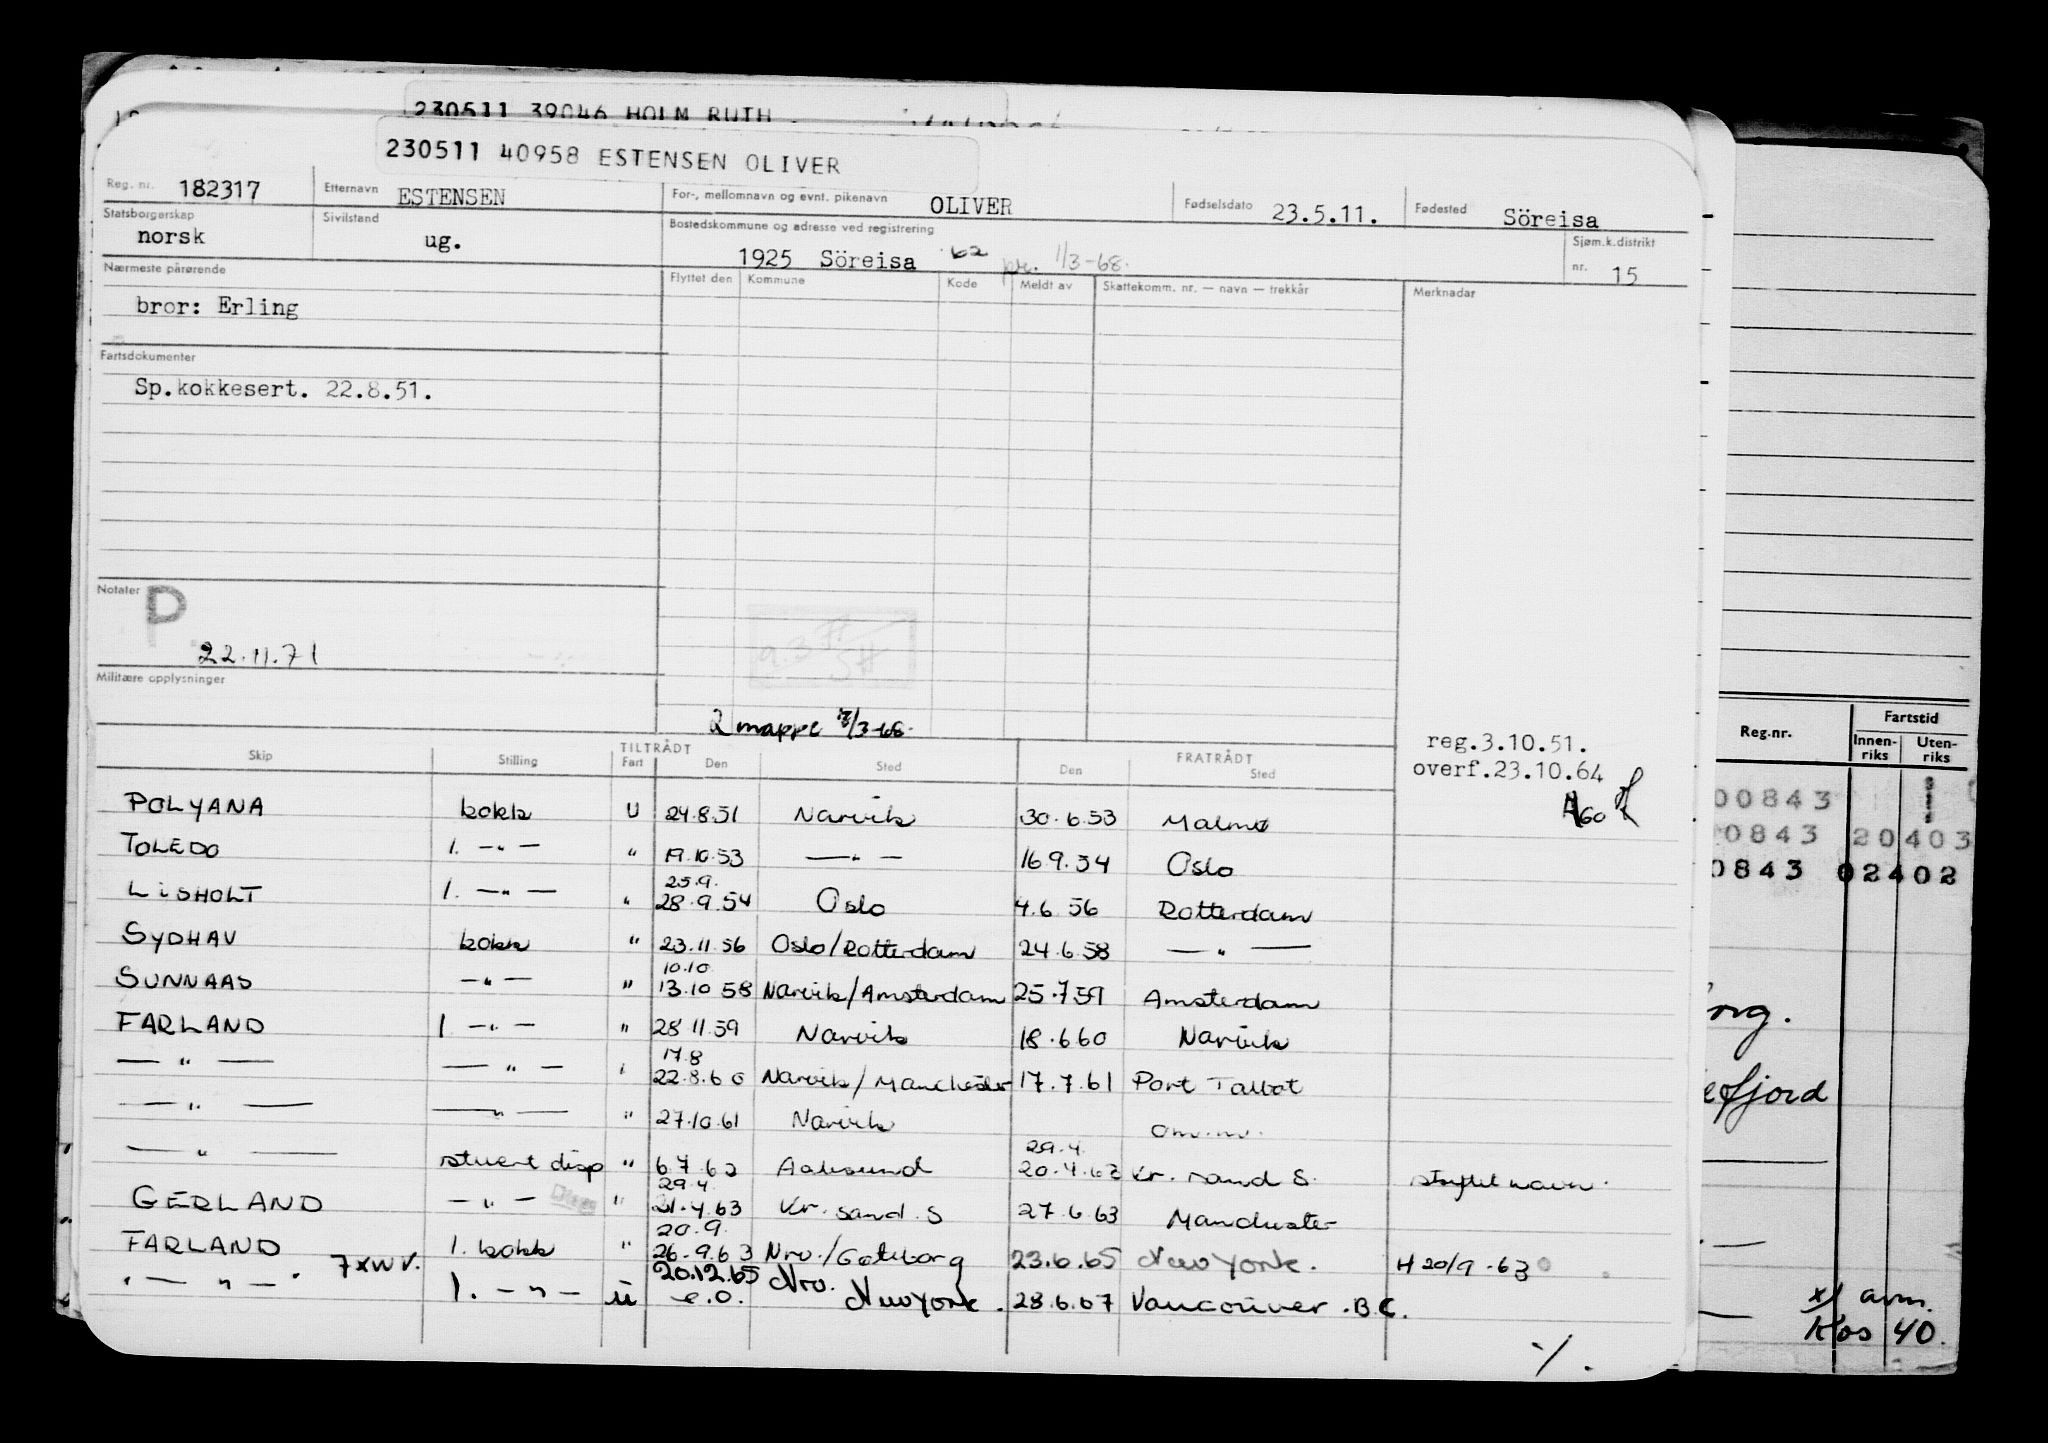 230511 39046 HOLM RUTH
230511 40958 ESTENSEN OLIVER
Reg. nr. 182317 Etternavn ESTENSEN For-, mellomnavn og evnt. pikenavn OLIVER Fødselsdato 23.5.11. Fødested Söreisa
Statsborgerskap norsk Sivilstand ug. Bostedskommune og adresse ved registrering 1925 Söreisa 62 pr. 1/3-68. Sjøm.k.distrikt nr. 15
Nærmeste pårørende Flyttet den Kommune Kode Meldt av Skattekomm. nr. — navn — trekkår Merknadar
bror: Erling
Fartsdokumenter
Sp.kokkesert. 22.8.51.
Notater P
22.11.71
Militære opplysninger
2 mappe /3-68.
reg.3.10.51.
overf.23.10.64
A60
TILTRÅDT FRATRÅDT
Skip Stilling Fart Den Sted Den Sted
POLYANA kokk U 24.8.51 Narvik 30.6.53 Malmø
TOLEDO 1. —"— " 19.10.53 —"— 16.9.54 Oslo
25.9.
LISHOLT 1. —"— " 28.9.54 Oslo 4.6.56 Rotterdam
SYDHAV kokk " 23.11.56 Oslo/Rotterdam 24.6.58 —"—
10.10
SUNNAAS —"— " 13.10 58 Narvik/Amsterdam 25.7.59 Amsterdam
FARLAND 1 —"— " 28 11.59 Narvik 18.6.60 Narvik
17.8
—"— —"— " 22.8.60 Narvik/Manchester 17.7.61 Port Talbot
—"— —"— " 27.10.61 Narvik om.m.
29.4.
—"— stuert disp " 6.7.62 Aalesund 20.4.63 Kr. sand S. skiftet navn.
29.4.
GERLAND —"— " 21.4.63 Kr. sand. S 27.6.63 Manchester
20.9.
FARLAND 1. kokk " 26.9.63 Nrv./Gøteborg 23.6.65 New York. H 20/9-63
7xNV. 20.12.65 Nrv.
—"— 1. —"— ü e.o. New York. 28.6.67 Vancouver. B.C.
%.
Reg.nr. Fartstid
Innen-riks Uten-riks
00843 1
0843 20403
0843 02402
efjord
x/ avm.
Kos 40.